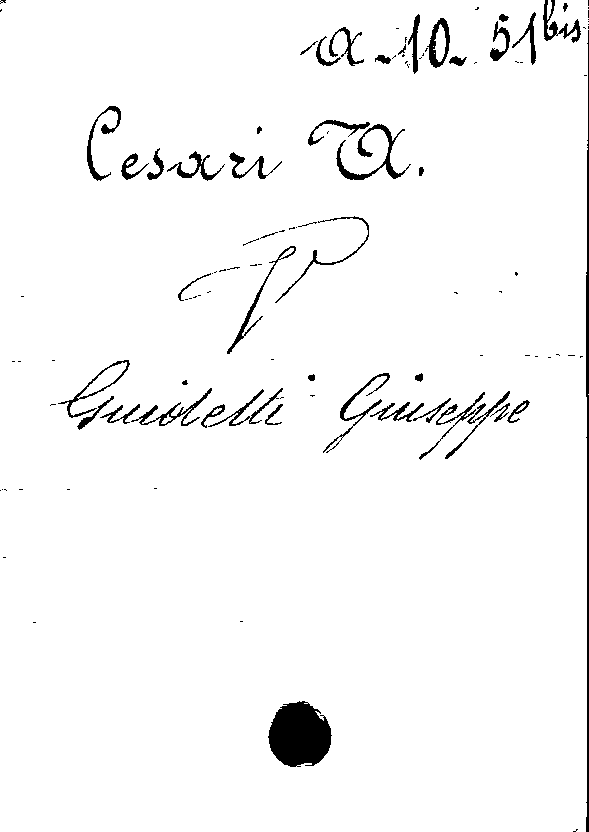 A. 10. 51 bis
Cesari A.
V
Guidetti Giuseppe